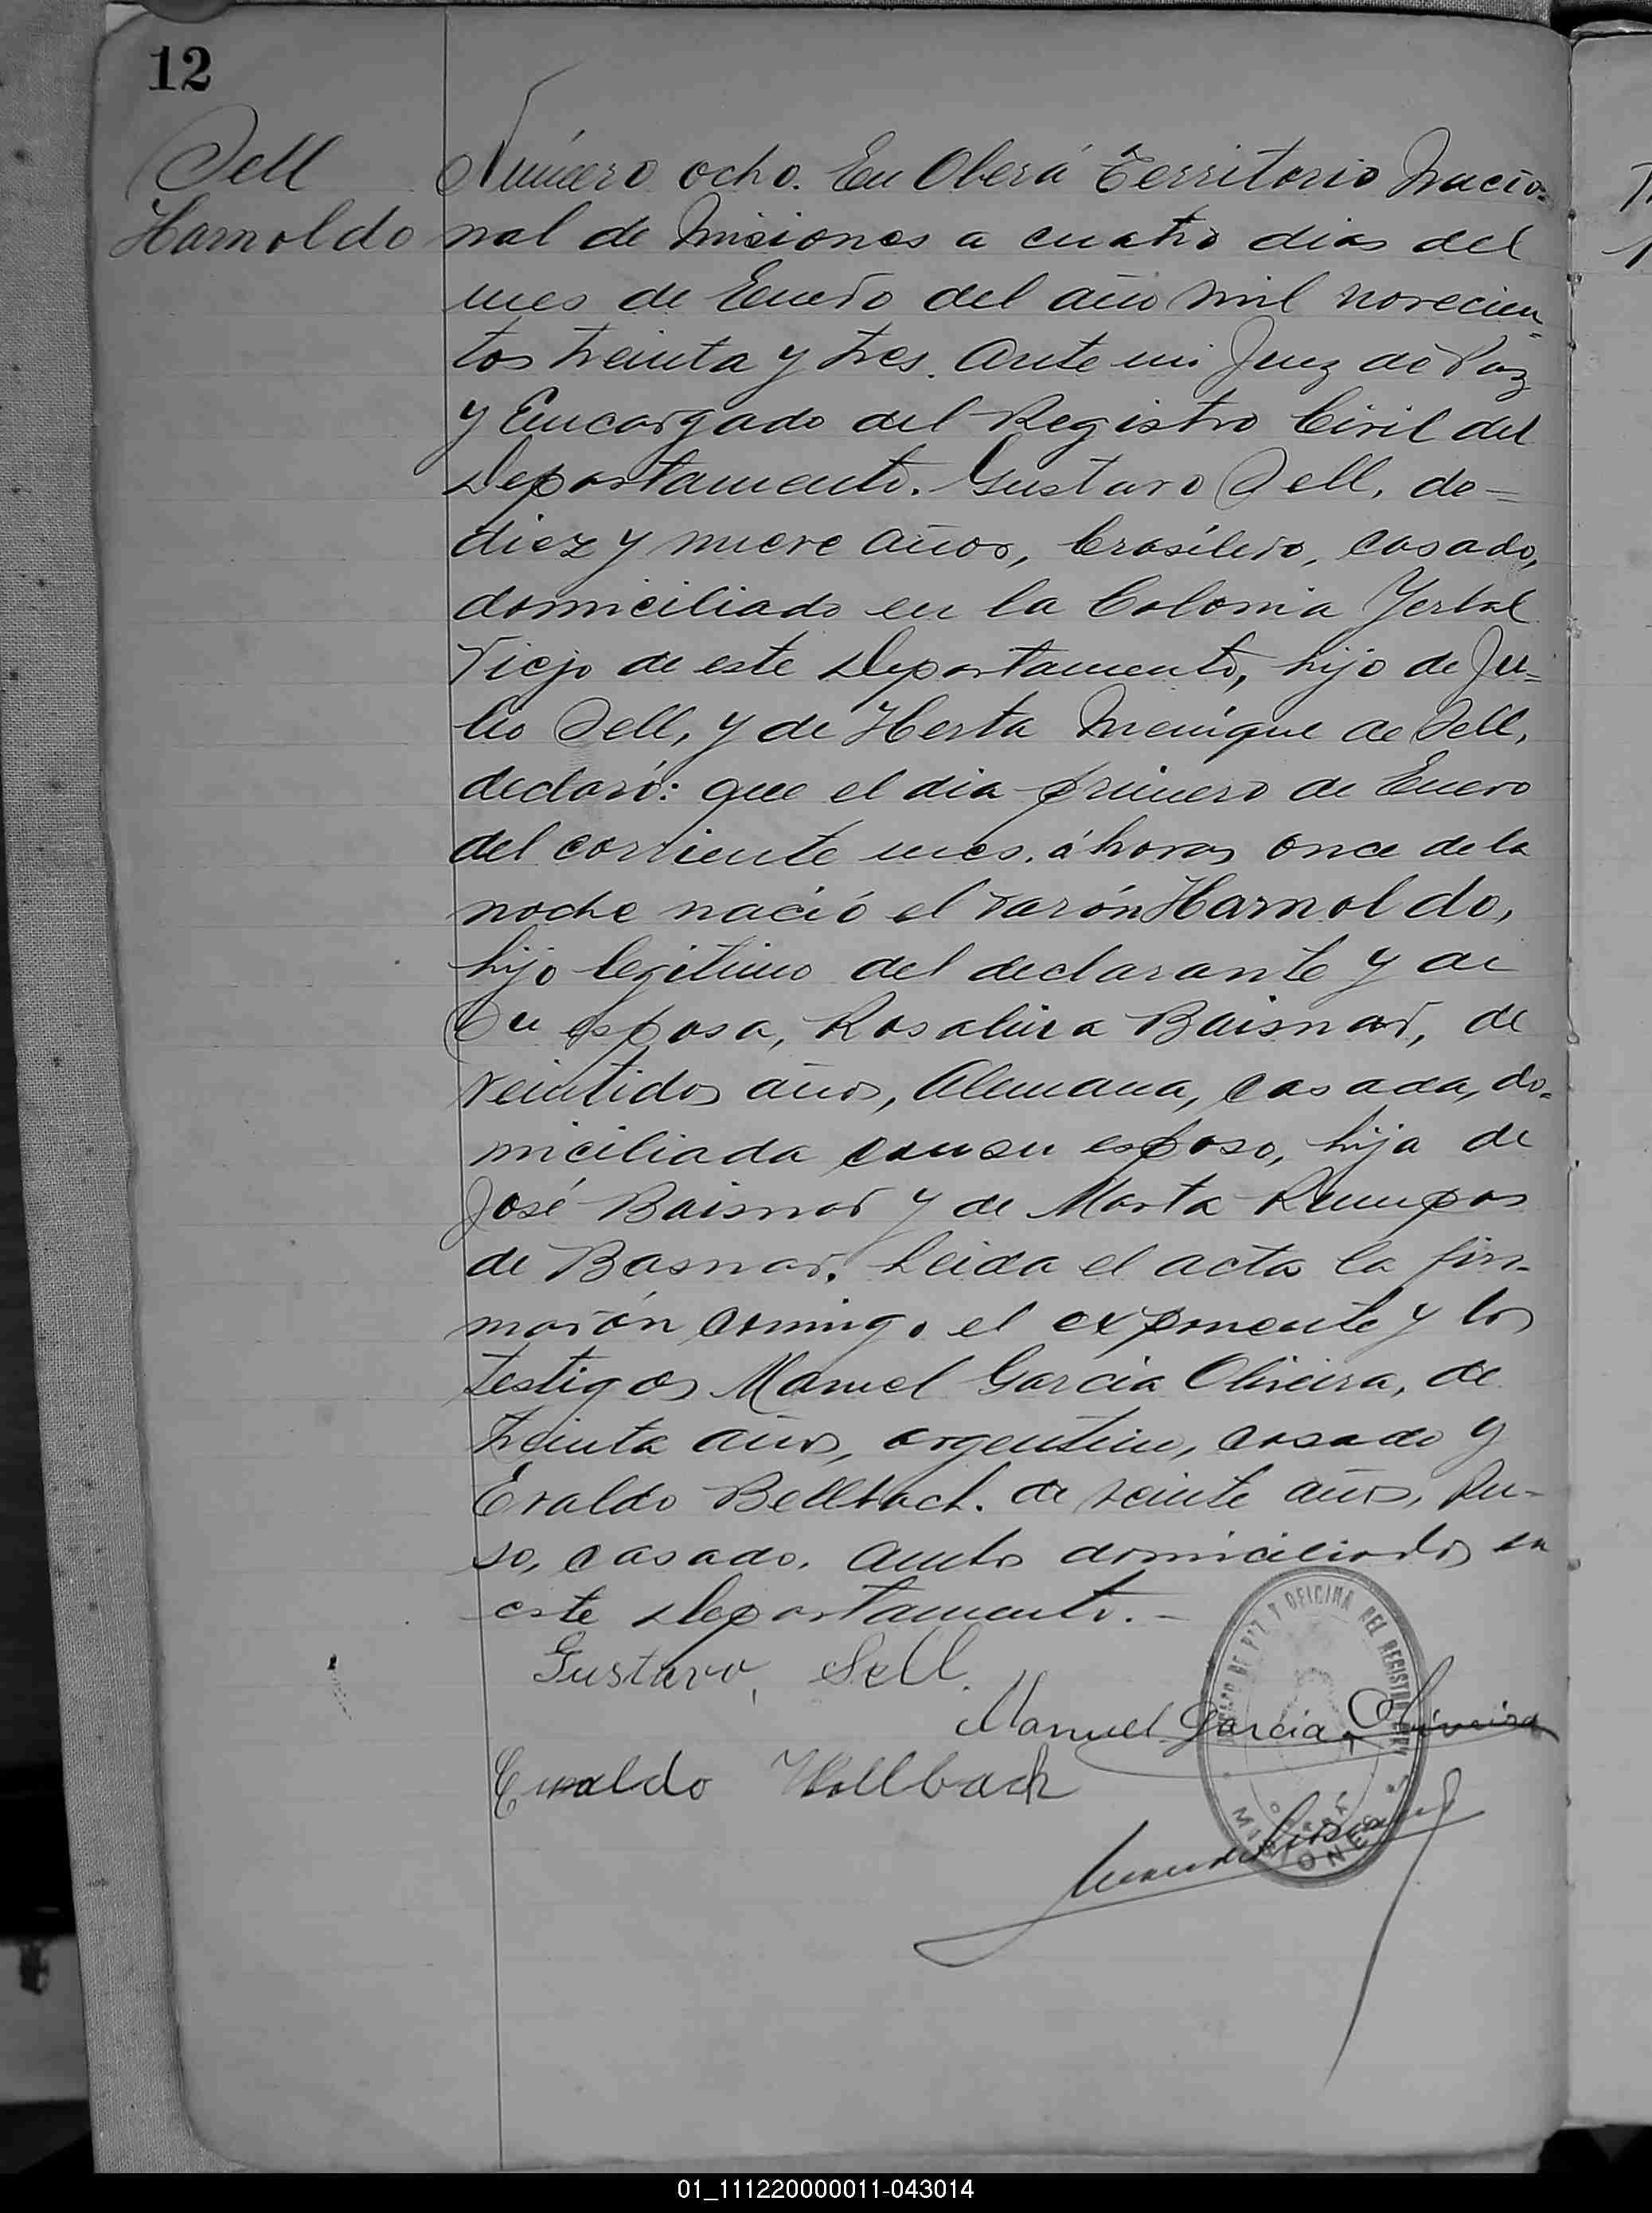 12
Sell
Harnoldo
Número ocho. En Oberá Territorio Nacio-
nal de Misiones a cuatro dias del
mes de Enero del año mil novecien-
tos treinta y tres. Ante mi Juez de Paz
y Encargado del Registro Civil del
Departamento. Gustavo Sell, de-
diez y nueve años, brasilero, casado,
domiciliado en la Colonia Yerbal
Viejo de este Departamento, hijo de Ju-
lio Sell, y de Herta Menigue de Sell,
declaró: que el dia primero de Enero
del corriente mes. á horas once de la
noche nació el varón Harnoldo,
hijo legitimo del declarante y de
Su esposa, Rosalina Baisnar, de
veintidos años, Alemana, casada, do-
miciliada con su esposo, hija de
José Baisnar y de Marta Rumpos
de Basnar. Leida el acta la fir-
marón comigo el exponente y los
testigos Manuel Garcia Oliveira, de
treinta años, argentino, casado y
Evaldo Bellbach. de veinte años, Ru-
so, casado, ambos domiciliados en
este Departamento.-
Gustavo, Sell.
Manuel Garcia Oliveira
Ewaldo Hollbach
JUZGADO DE PAZ Y OFICINA DEL REGISTRO CIVIL
OBERÁ
MISIONES
01_111220000011-043014